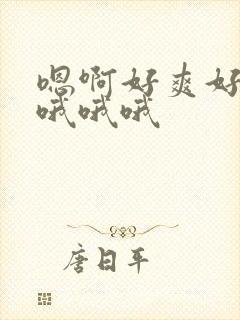 嗯啊好爽好
哦哦哦
唐日平